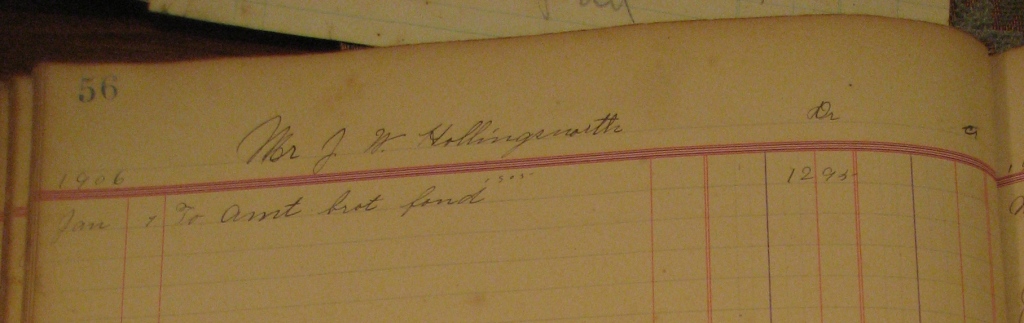 56
Mr J W. Hollingsworth Dr
1906
Jan 1 To amt brot fond 1905 12 95